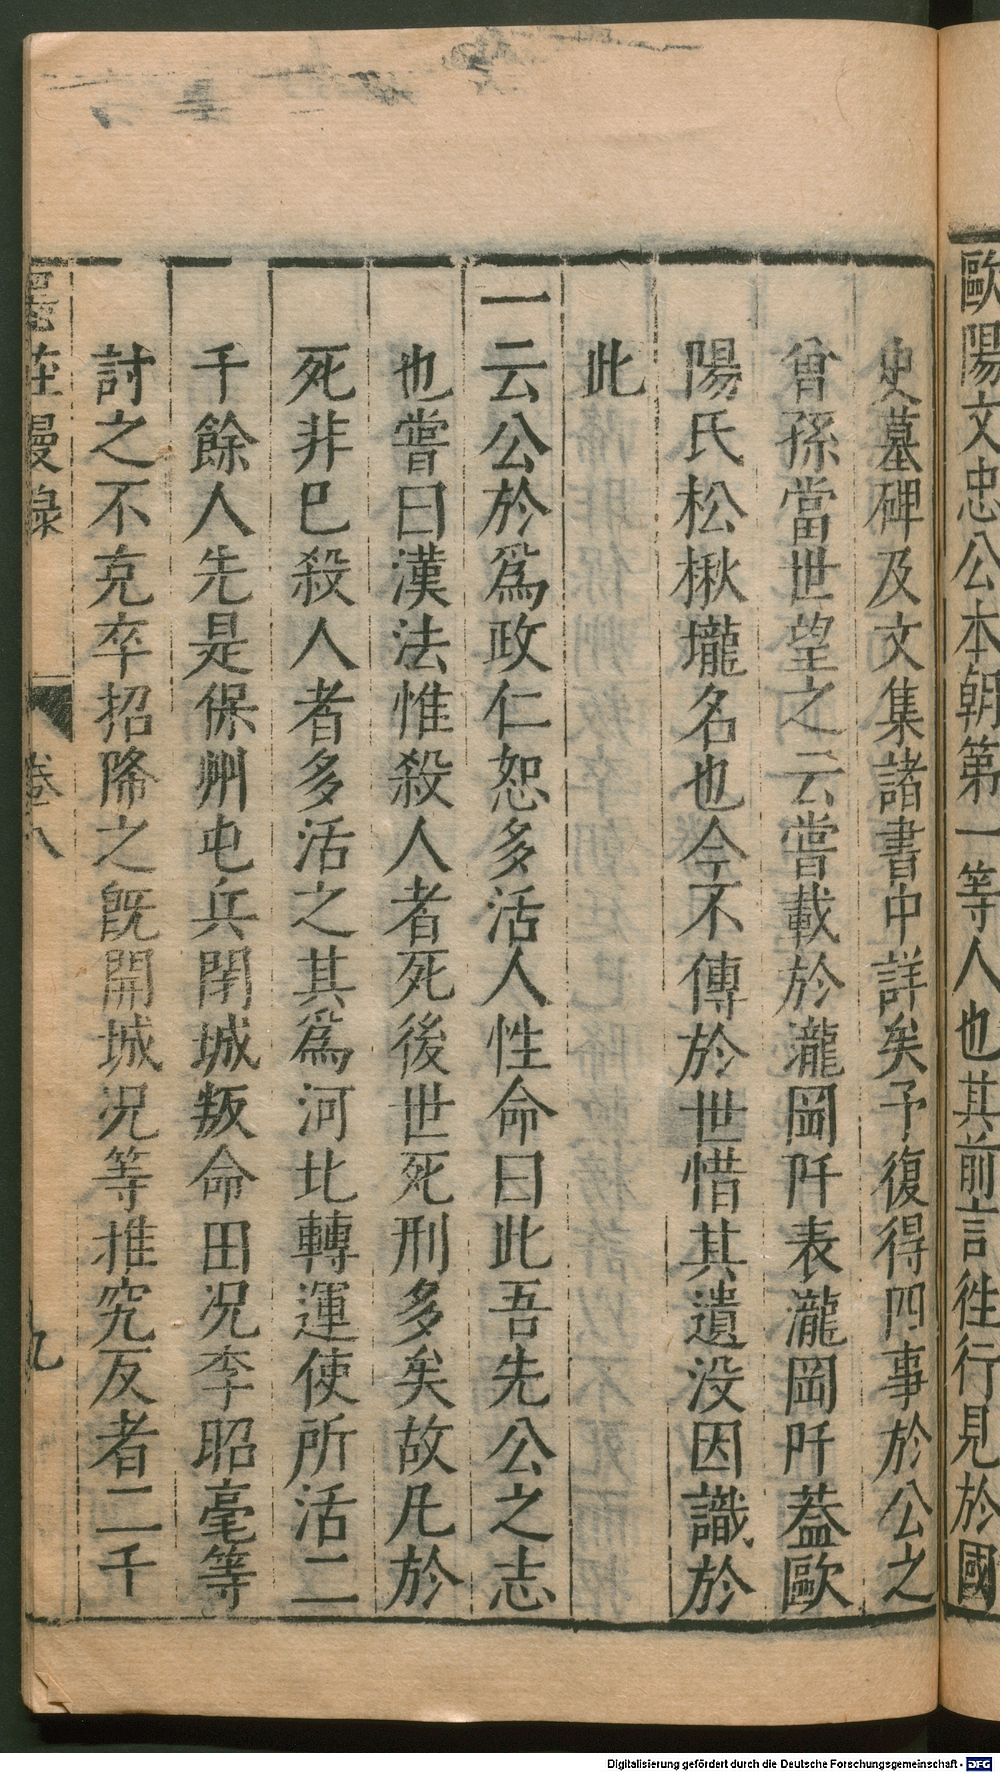 歐陽文忠公本朝第一等人也其前言徃行見於國
史墓碑及文集諸書中詳矣予復得四事於公之
曾孫當世望之云嘗載於瀧岡阡表瀧岡阡葢歐
陽氏松楸壠名也今不傳於世惜其遺没因識於
此
一云公於爲政仁恕多活人性命曰此吾先公之志
也嘗曰漢法惟殺人者死後世死刑多矣故凡於
死非巳殺人者多活之其爲河北轉運使所活二
千餘人先是保州屯兵閉城叛命田况李昭亳等
討之不克卒招降之旣開城况等推究反者二千
墨莊漫錄
卷八
九
Digitalisierung gefördert durch die Deutsche Forschungsgemeinschaft - DFG